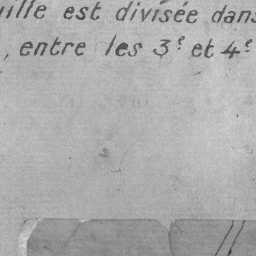 uille est divisée dans
, entre les 3e et 4e